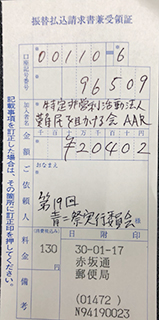 振替払込請求書兼受領証
口座記号番号
00110-6
96509
加入者名
特定非営利活動法人
難民を助ける会 AAR
金額
千 百 十 万 千 百 十 円
¥20402
ご依頼人
おなまえ
第19回
青二祭実行委員会
様
料金
(消費税込み)
130
円
日附印
30-01-17
赤坂通
郵便局
(01472)
N94190023
備考
記載事項を訂正した場合は、その箇所に訂正印を押してください。